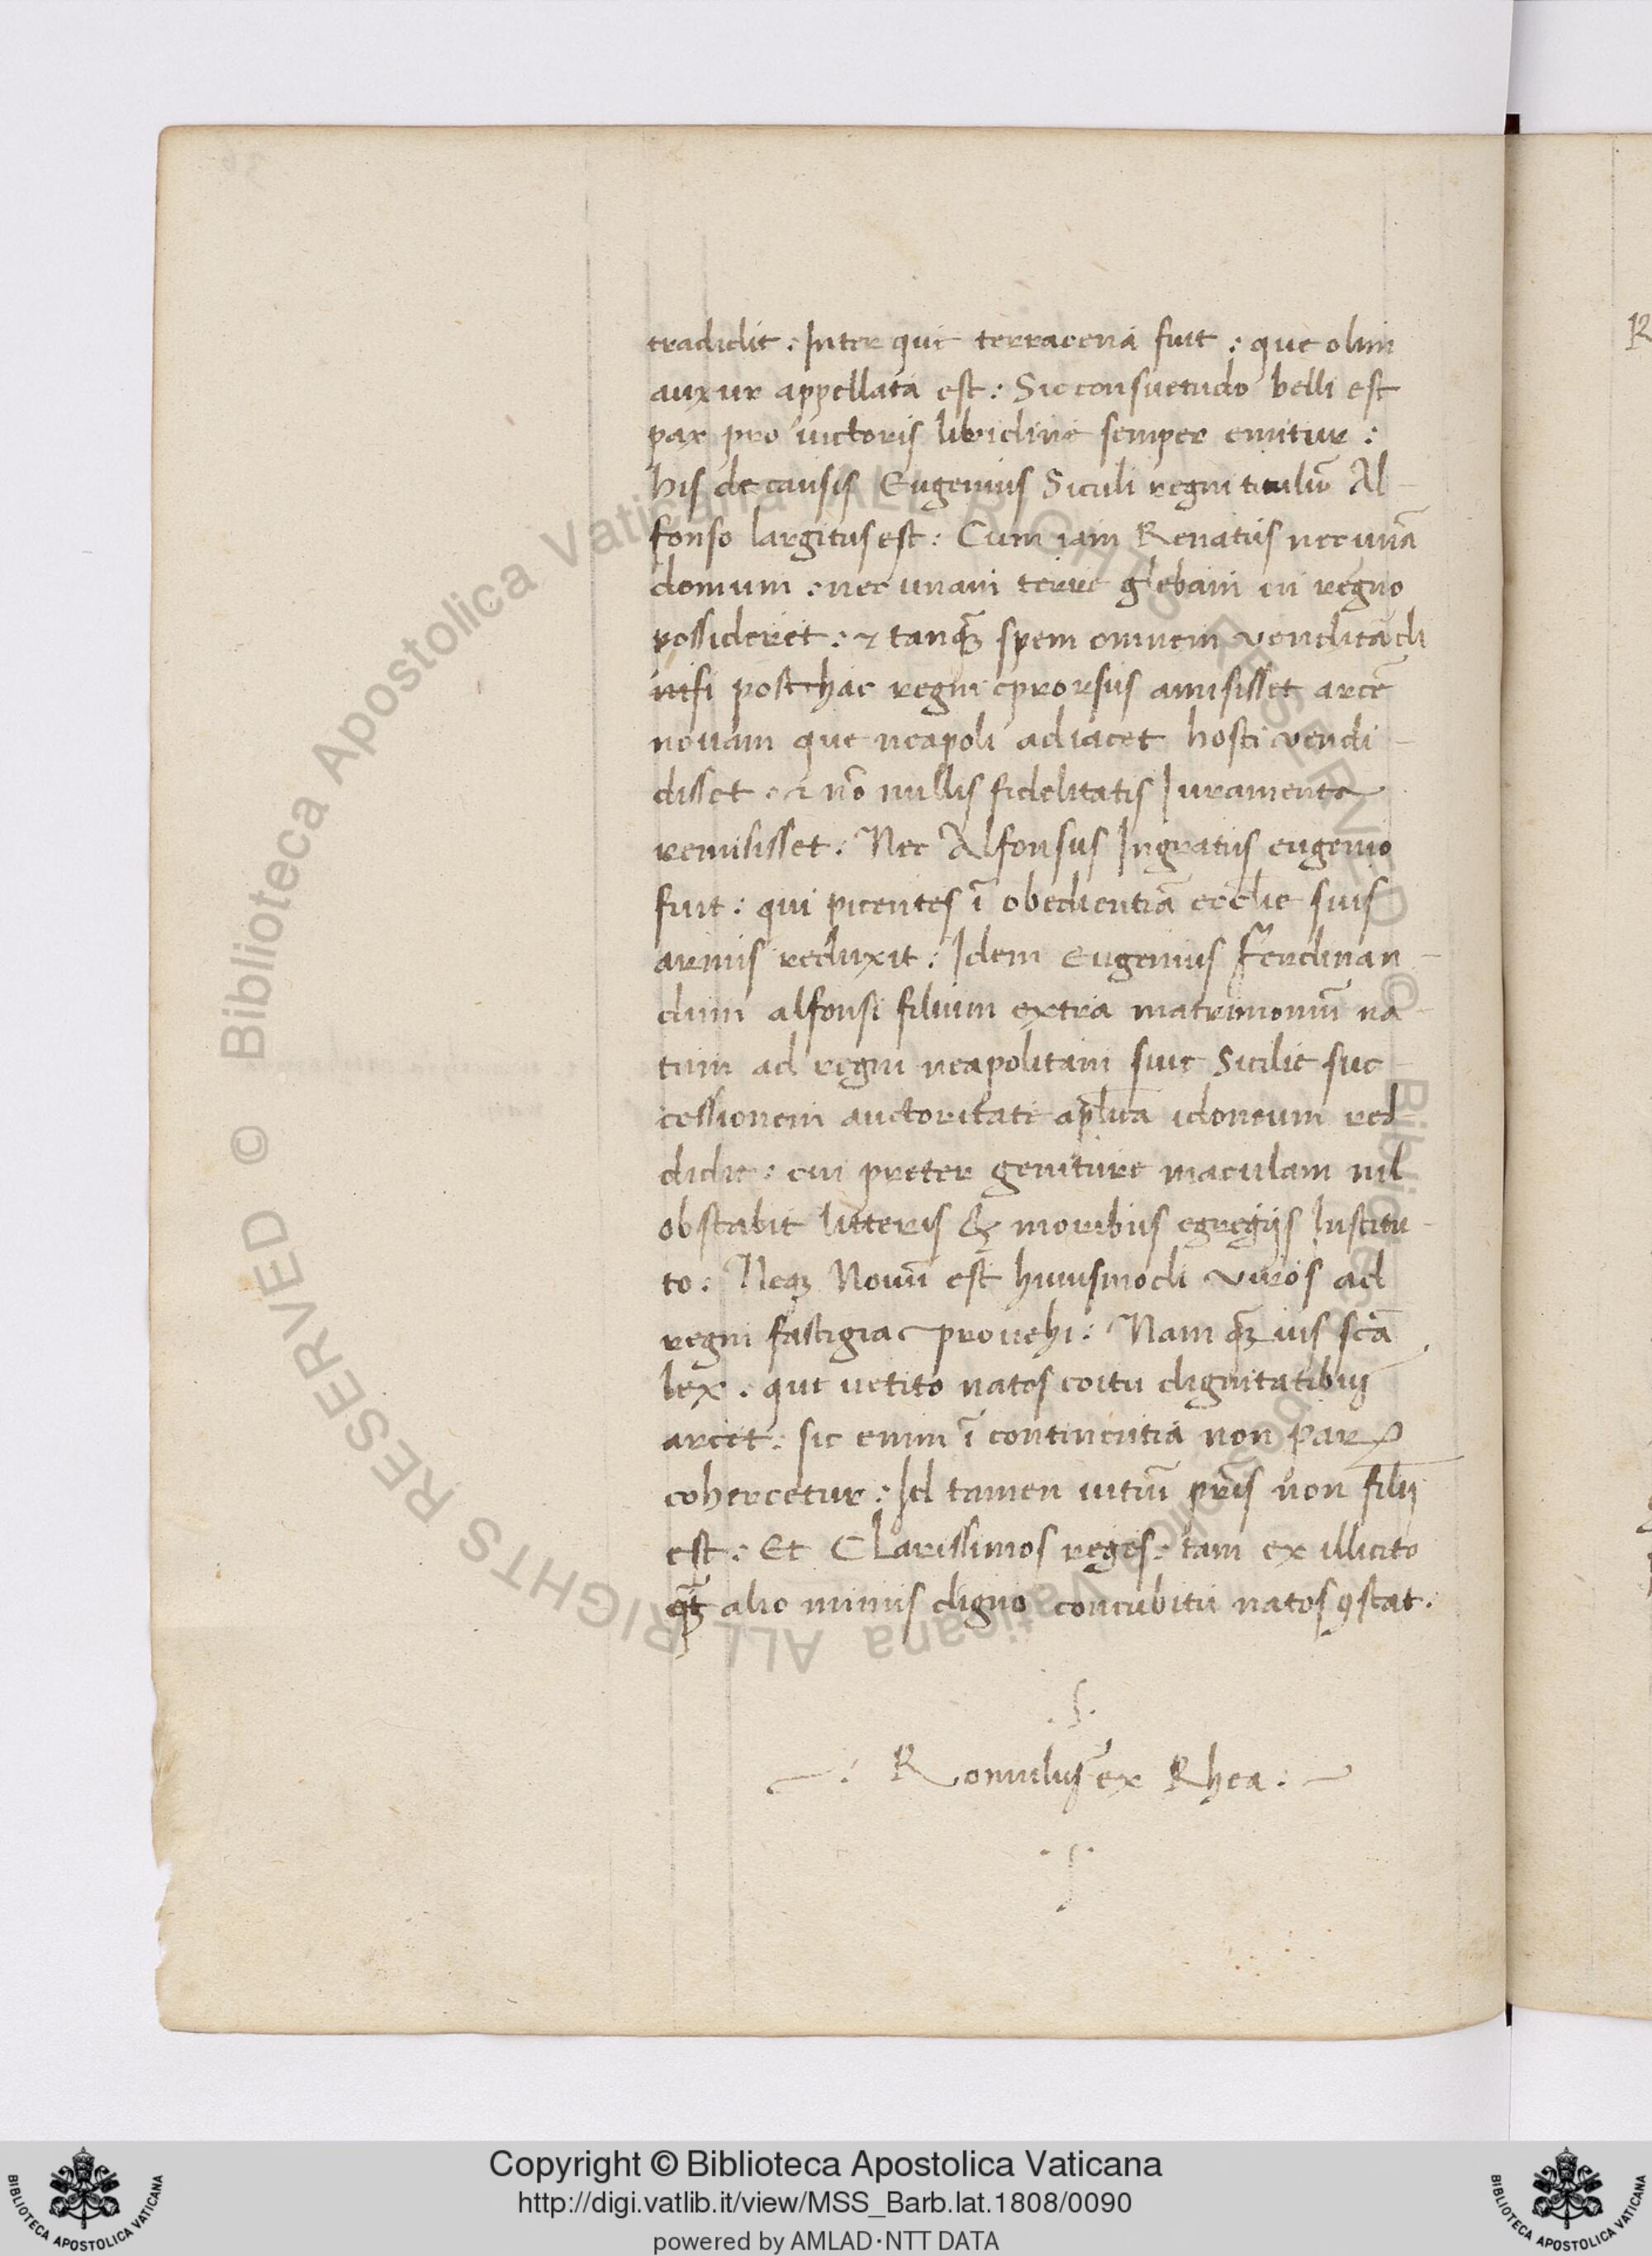 tradidit : Inter que terracena fuit : que olim
auxur appellata est : Sic consuetudo belli est
pax pro uictoris libidine semper emitur :
his de causis Eugenius Siculi regni titulũ Al-
fonso largitus est : Cum iam Renatus nec unã
domum : nec unam terre glebam in regno
possideret : & tanqꝫ spem omnem venditãdi
nisi posthac regni prorsus amisisset arcẽ
nouam que neapoli adiacet hosti vendi-
disset : & nõ nullis fidelitatis Iuramenta
remisisset : Nec Alfonsus Ingratus eugenio
fuit : qui picentes ĩ obedientiã ecclie suis
armis reduxit : Idem Eugenius Ferdinan-
dum alfonsi filium extra matrimoniũ na-
tum ad regni neapolitani siue Sicilie suc-
cessionem auctoritate aplica idoneum red
didit : cui preter geniture maculam nil
obstabit litteris & moribus egregijs Institu-
to : Neqꝫ Nouũ est huiusmodi viros ad
regni fastigia prouehi : Nam qꝫ ius scã
lex : que uetito natos coitu dignitatibus
arcet : sic enim ĩ continentia non parꝫ
cohercetur : Id tamen uitiũ pris non filij
est : Et Clarissimos reges : tam ex illicito
qꝫ alio minus digno concubitu natos ꝯstat :
. Romulus ex Rhea :
R
© Biblioteca Apostolica Vaticana ALL RIGHTS RESERVED © Biblioteca Apostolica Vaticana ALL RIGHTS RESERVED
Copyright © Biblioteca Apostolica Vaticana
http://digi.vatlib.it/view/MSS_Barb.lat.1808/0090
powered by AMLAD·NTT DATA
BIBLIOTECA APOSTOLICA VATICANA
BIBLIOTECA APOSTOLICA VATICANA